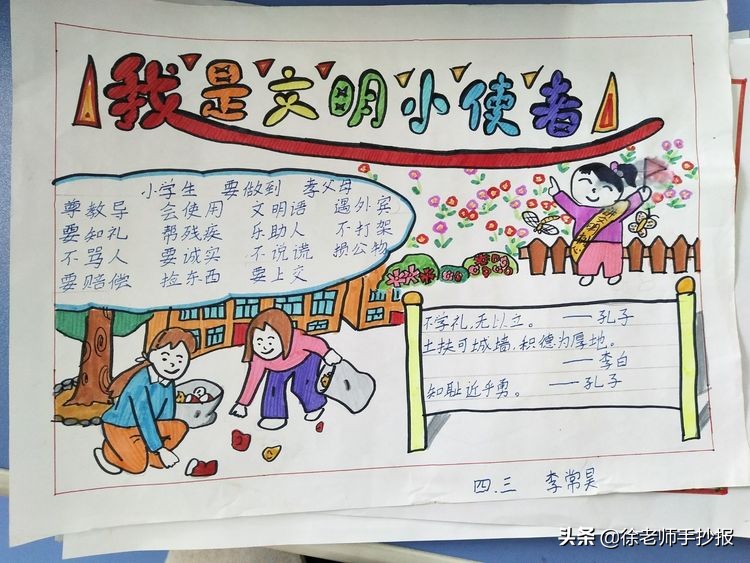 我是文明小使者
小学生 要做到 孝父母
尊教导 会使用 文明语 遇外宾
要知礼 帮残疾 乐助人 不打架
不骂人 要诚实 不说谎 损公物
要赔偿 捡东西 要上交
不学礼,无以立。——孔子
土扶可城墙,积德为厚地。
——李白
知耻近乎勇。——孔子
四.三 李常昊
头条 @徐老师手抄报